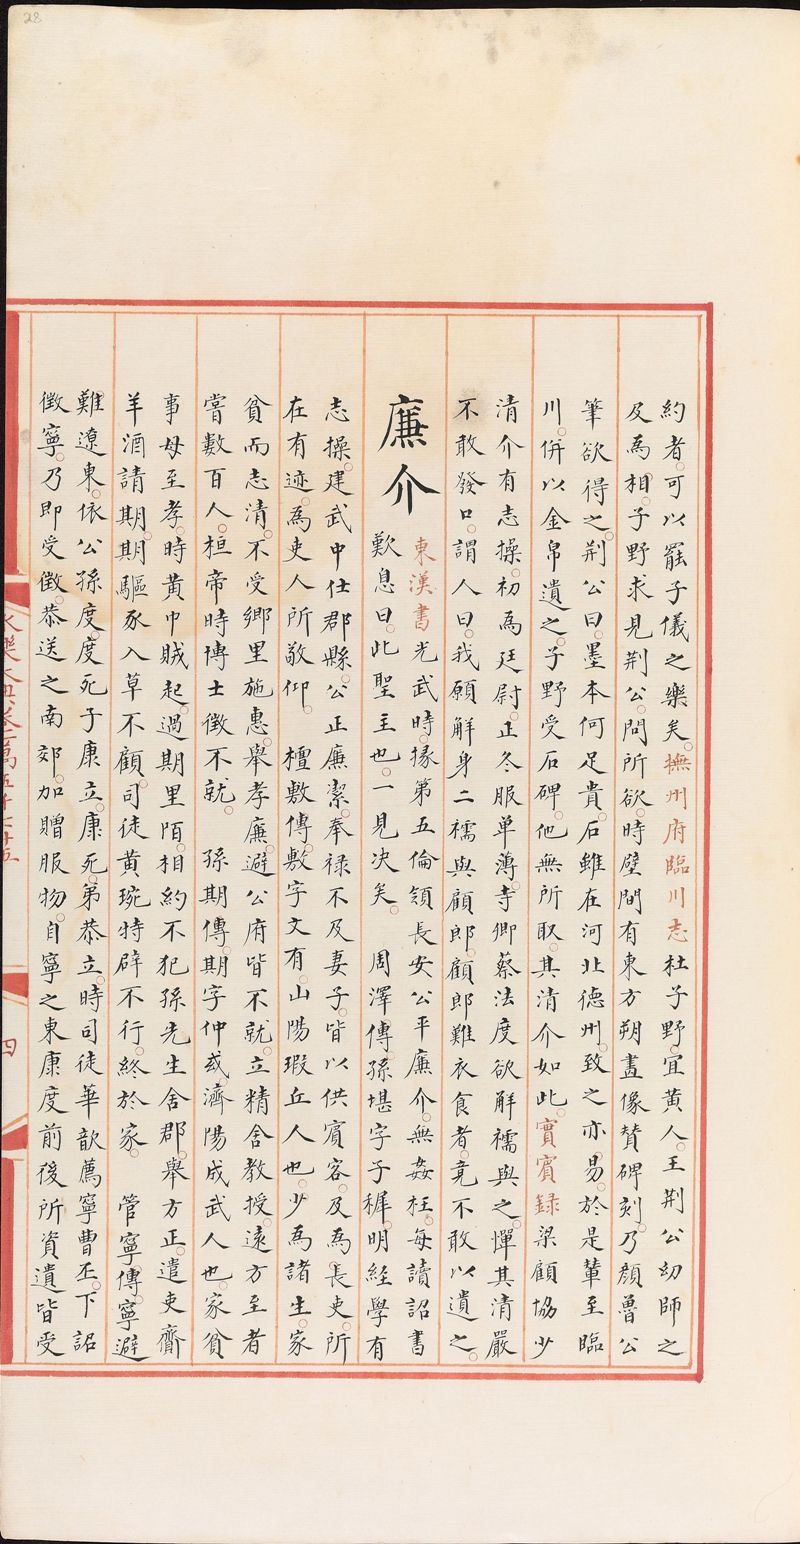 28
約者。可以罷子儀之樂矣。撫州府臨川志杜子野。宜黃人。王荆公幼師之
及為相。子野求見荆公。問所欲。時壁間有東方朔畫像贊碑刻。乃顏魯公
筆欲得之。荆公曰。墨本何足貴。石雖在河北德州。致之亦易。於是輦至臨
川。併以金帛遺之。子野受石碑。他無所取。其清介如此。實賓録梁顧協少
清介有志操。初為廷尉。正冬服單薄。寺卿蔡法度欲解襦與之。憚其清嚴
不敢發口。謂人曰。我願解身二襦與顧郎。顧郎難衣食者。竟不敢以遺之。
廉介
東漢書光武時。掾第五倫領長安公平廉介。無姦枉。每讀詔書
歎息曰。此聖主也。一見决矣。 周澤傳。孫堪字子穉。明經學有
志操。建武中仕郡縣。公正廉潔。奉禄不及妻子。皆以供賓客。及為長吏。所
在有迹。為吏人所敬仰。 檀敷傳。敷字文有。山陽瑕丘人也。少為諸生。家
貧而志清。不受鄉里施惠。舉孝廉。避公府皆不就。立精舍教授。遠方至者
嘗數百人。桓帝時博士徵不就。 孫期傳。期字仲彧。濟陽成武人也。家貧
事母至孝。時黃巾賊起。過期里陌。相約不犯孫先生舍郡。舉方正。遣吏齎
羊酒請期。期驅豕入草不顧。司徒黃琬特辟不行。終於家。 管寧傳。寧避
難遼東。依公孫度。度死子康立。康死。弟恭立。時司徒華歆薦寧曹丕。下詔
徵寧。乃即受徵。恭送之南郊。加贈服物。自寧之東康度前後所資遺皆受
四